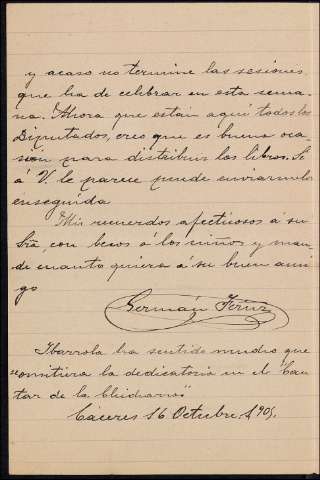 y acaso no termine las sesiones
que ha de celebrar en esta sema-
na. Ahora que están aquí todos los
Diputados, creo que es buena oca-
sión para distribuir los libros. Si
á V. le parece puede enviarmelos
enseguida
Mis recuerdos afectuosos á su
Sra, con besos á los niños y man-
de cuanto quiera á su buen ami-
go
Germán
Ibarrola ha sentido mucho que
la dedicatoria en el "Can-
tar de la
Cáceres 16 Octubre 1905.